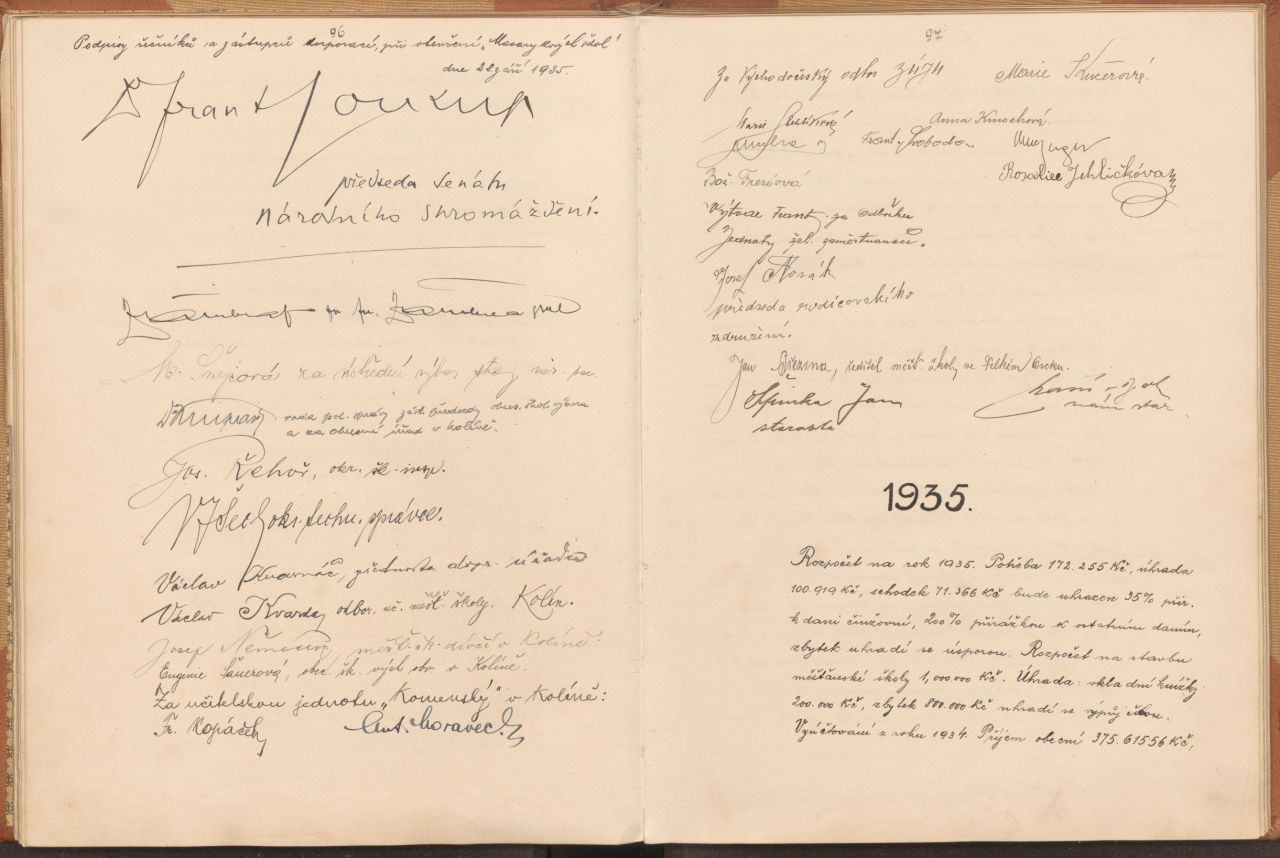 96
Podpisy řečníků a zástupců korporací, při otevření „Masarykových škol“
dne 28. září 1935.
Dr Frant Soukup
předseda Senátu
Národního shromáždění.
za
M. Šnejdová za ústřední výbor
rada pol. správy zást. předsedy okres. škol. výboru
a za okresní úřad v Kolíně.
Jos. Řehoř, okr. šk. insp.
okr. techn. správce.
Václav přednosta dopr. úřadu
Václav Kvarda odbor. uč. měšť. školy. Kolín.
Josef Němeček, měšť. šk. dívčí v Kolíně.
Eugenie Šauerová, obec. šk. vých. obv. v Kolíně.
Za učitelskou jednotu „Komenský“ v Kolíně:
Fr. Kopáček Ant. Moravec
97
Za Východočeský odbor Marie Kučerová.
Marie Anna Kmochová.
Frant. Svoboda
Rosalie Jehličková
Bož.
Frant. za Odbočku
Jednoty žel. zaměstnanců.
Josef Novák
předseda rodičovského
sdružení.
Jan Březina, ředitel měšť. školy ve Velkém Oseku.
Špinka Jan
starosta nám. star.
1935.
Rozpočet na rok 1935. Potřeba 172.255 Kč, úhrada
100.919 Kč, schodek 71.366 Kč bude uhrazen 35% přir.
k dani činžovní, 200% přirážkou k ostatním daním,
zbytek uhradí se úsporou. Rozpočet na stavbu
měšťanské školy 1,000.000 Kč. Úhrada: vkladní knížky
200.000 Kč, zbytek 800.000 Kč uhradí se výpůjčkou.
Vyúčtování z roku 1934. Příjem obecní 375.615˙56 Kč,